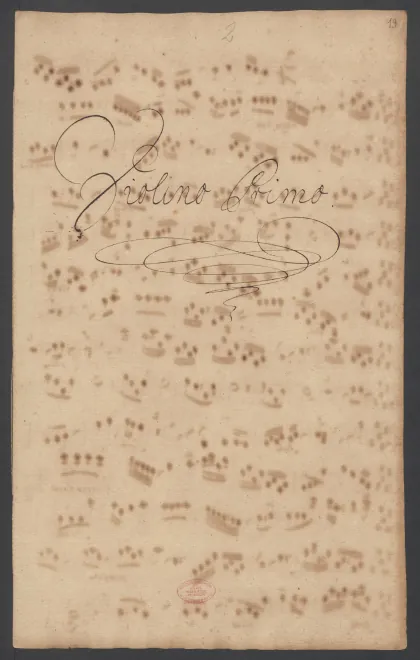 2
13
Violino Primo.